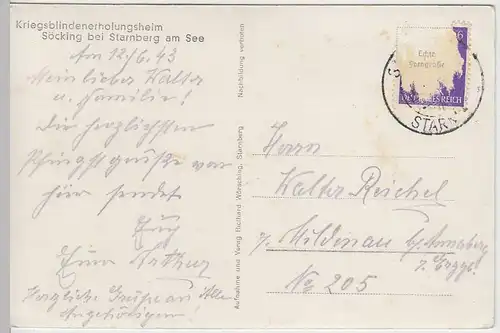 Kriegsblindenerholungsheim
Söcking bei Starnberg am See
Am 12/6.43
Mein lieber Walter
u. Familie!
Die herzlichsten
Pfingstgrüße von
hier sendet
Euch
Euer Arthur
Herzliche Grüße an Alle
Angehörigen!
Nachbildung verboten
Aufnahme und Verlag Eberhard Wörsching, Starnberg
6
DEUTSCHES REICH
STARN
Herrn
Walter Reichel
Mildenau b/ Annaberg
No 205